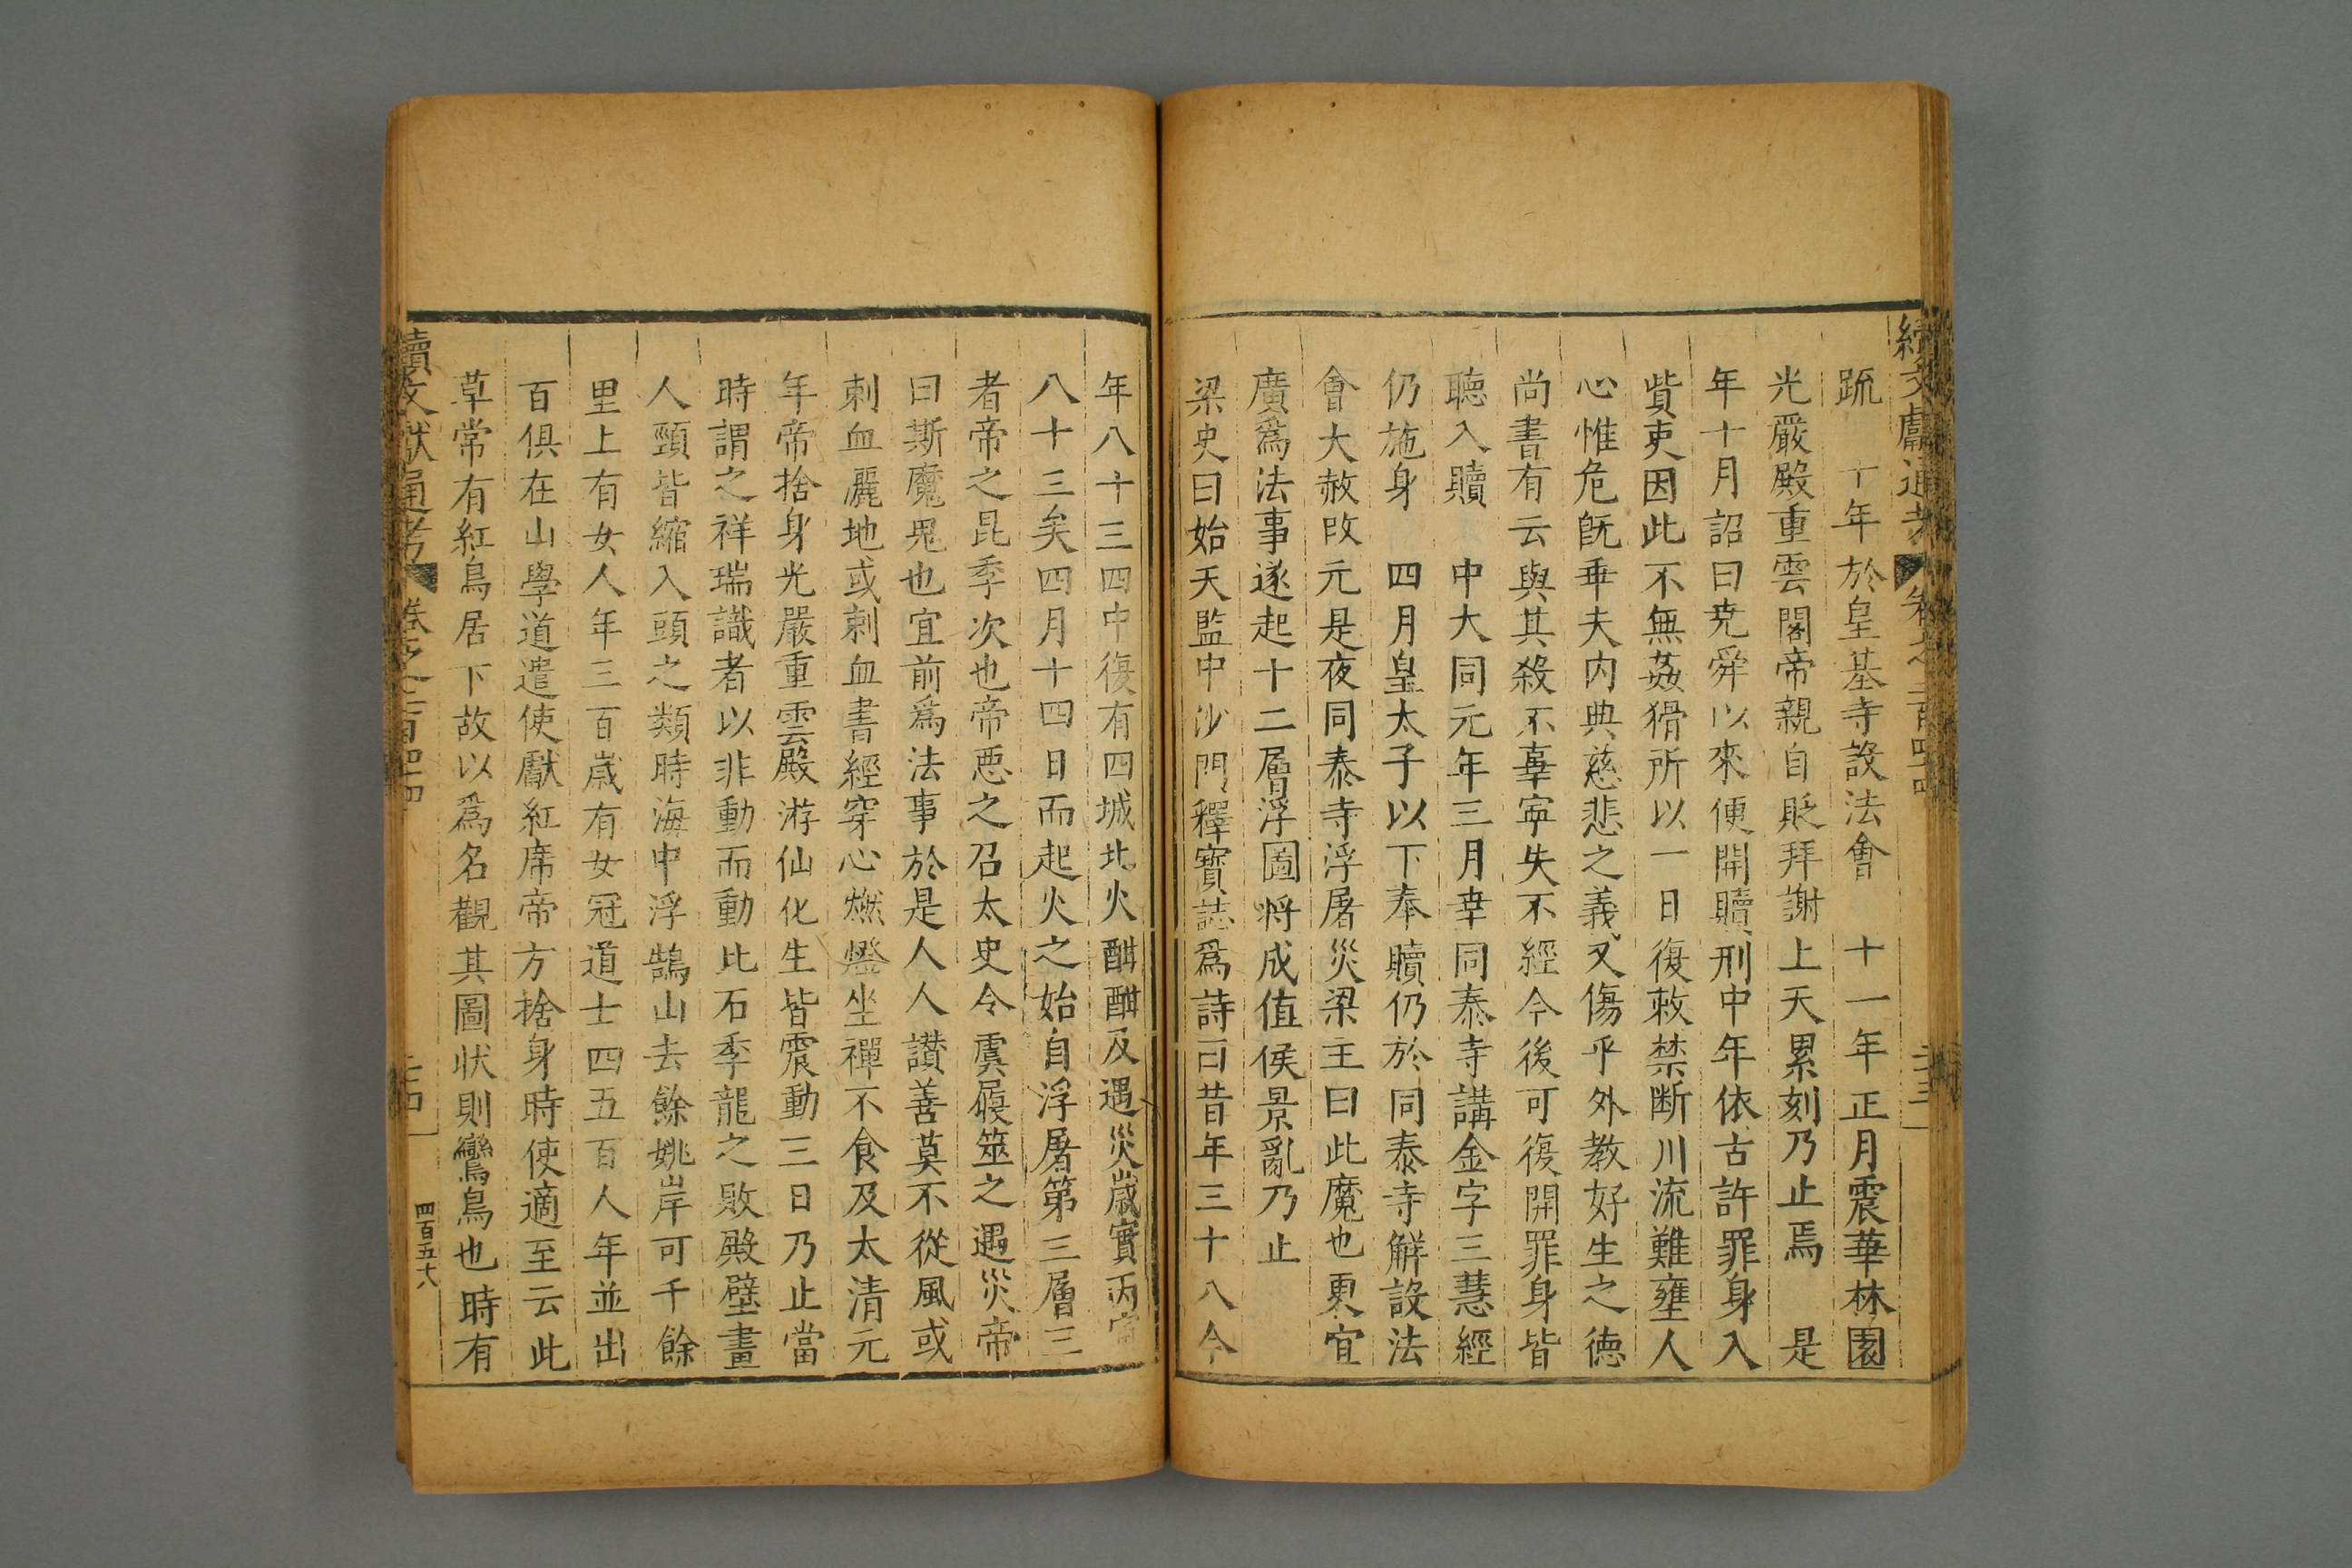 續文獻通考 卷之二百四十四 二十三
䟽 十年於皇基寺設法會 十一年正月震華林園
光嚴殿重雲閣帝親自貶拜謝上天累刻乃止焉 是
年十月詔曰尭舜以來便開贖刑中年依古許罪身入
貲吏因此不無姦猾所以一日復敕禁断川流難壅人
心惟危旣乖夫内典慈悲之義又傷乎外教好生之德
尚書有云與其殺不辜寜失不經今後可復開罪身皆
聽入贖 中大同元年三月幸同泰寺講金字三慧經
仍施身 四月皇太子以下奉贖仍於同泰寺觧設法
會大赦改元是夜同泰寺浮屠災梁主曰此魔也更宜
廣爲法事遂起十二層浮圖將成值侯景亂乃止
梁史曰始天監中沙門釋寳誌爲詩曰昔年三十八今
年八十三四中復有四城北火酣酣及遇災歲實丙寅
八十三矣四月十四日而起火之始自浮屠第三層三
者帝之昆季次也帝惡之召太史令虞履筮之遇災帝
曰斯魔鬼也宜前爲法事於是人人讃善莫不從風或
刺血灑地或刺血書經穿心燃燈坐禪不食及太清元
年帝捨身光嚴重雲殿游仙化生皆震動三日乃止當
時謂之祥瑞識者以非動而動比石季龍之敗殿壁畫
人頸皆縮入頭之類時海中浮鵠山去餘姚岸可千餘
里上有女人年三百歲有女冠道士四五百人年並出
百俱在山學道遣使獻紅席帝方捨身時使適至云此
草常有紅鳥居下故以爲名觀其圖状則鸞鳥也時有
續文獻通考 卷之二百四十四 二十四
四百五十八